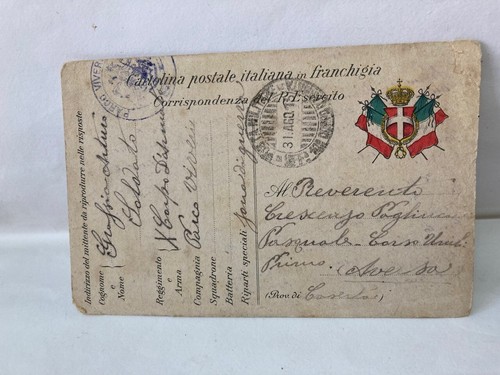 Cartolina postale italiana in franchigia
Corrispondenza del R. Esercito
PARCO VIVER
31.AGO.1
Al Reverento
Crescenzo Pagliuca
Pasquale - Corso Umberto
Primo - Aversa
(Prov. di Caserta)
Indirizzo del mittente da riprodurre nelle risposte
Cognome
e
Nome
Soldato
Reggimento
e
Arma
Corpo
Compagnia
Parco Viveri
Squadrone
Batteria
Riparti speciali
zona di guerra